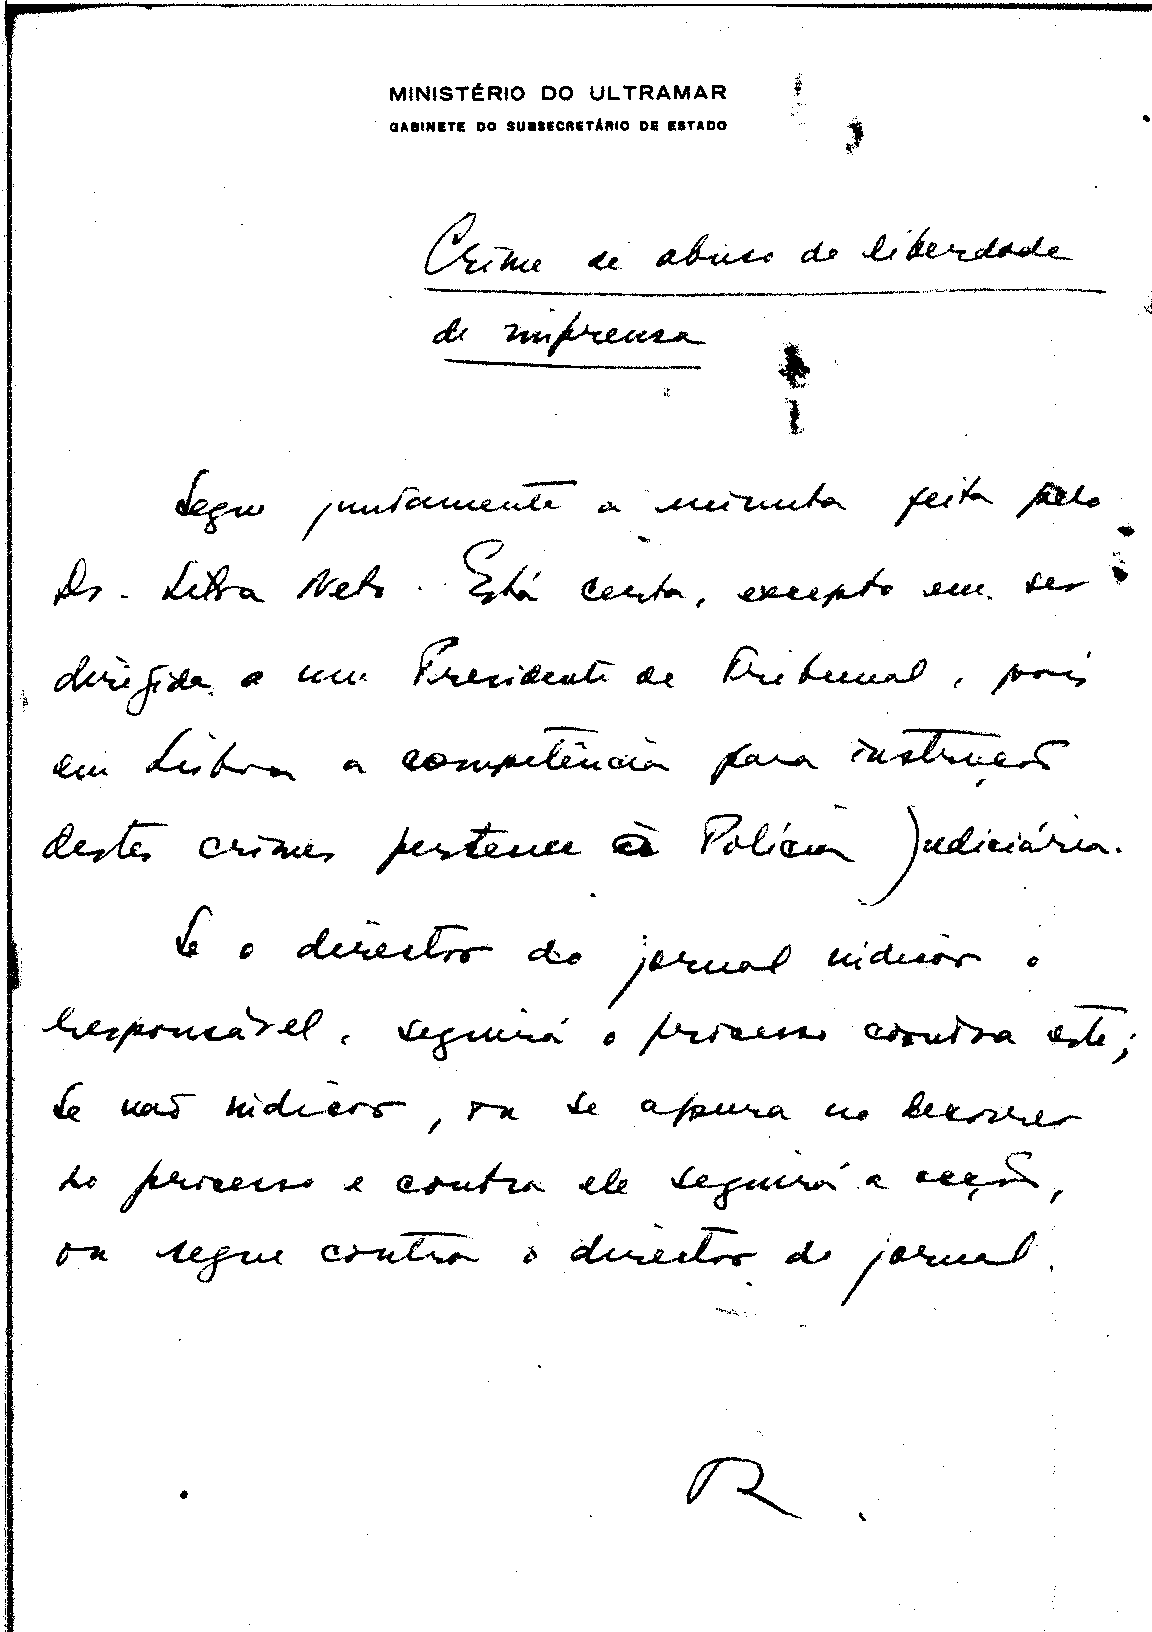 MINISTÉRIO DO ULTRAMAR
GABINETE DO SUBSECRETÁRIO DE ESTADO
Crime de abuso de liberdade
de imprensa
Segue juntamente a minuta feita pelo
Dr. Silva Neto. Está certa, excepto em ser
dirigida a um Presidente de Tribunal, pois
em Lisboa a competência para instrução
destes crimes pertence à Polícia Judiciária.
Se o director do jornal indicar o
responsável, seguirá o processo contra este;
se não indicar, ou se apura no decorrer
do processo e contra ele seguirá a acção,
ou segue contra o director do jornal.
R